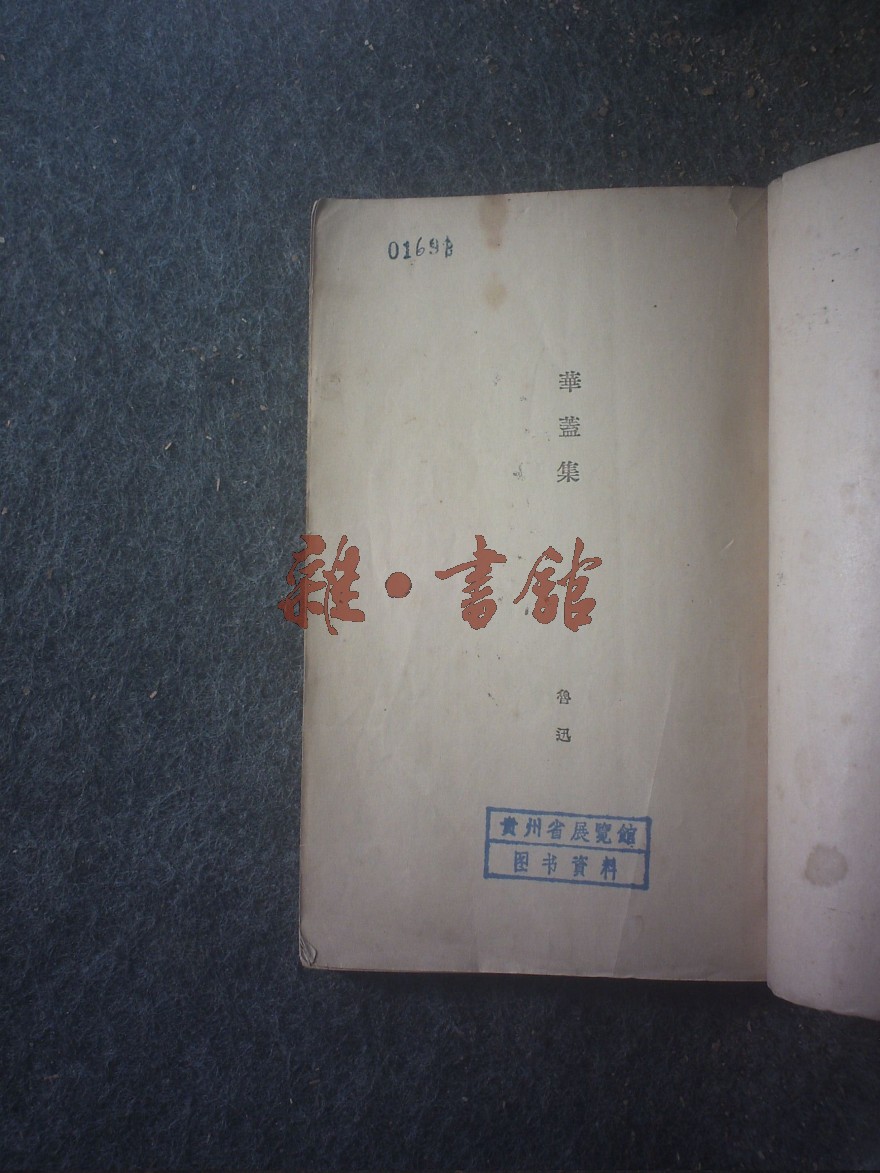 華蓋集
雜·書館
魯迅
贵州省展覽館
图书資料